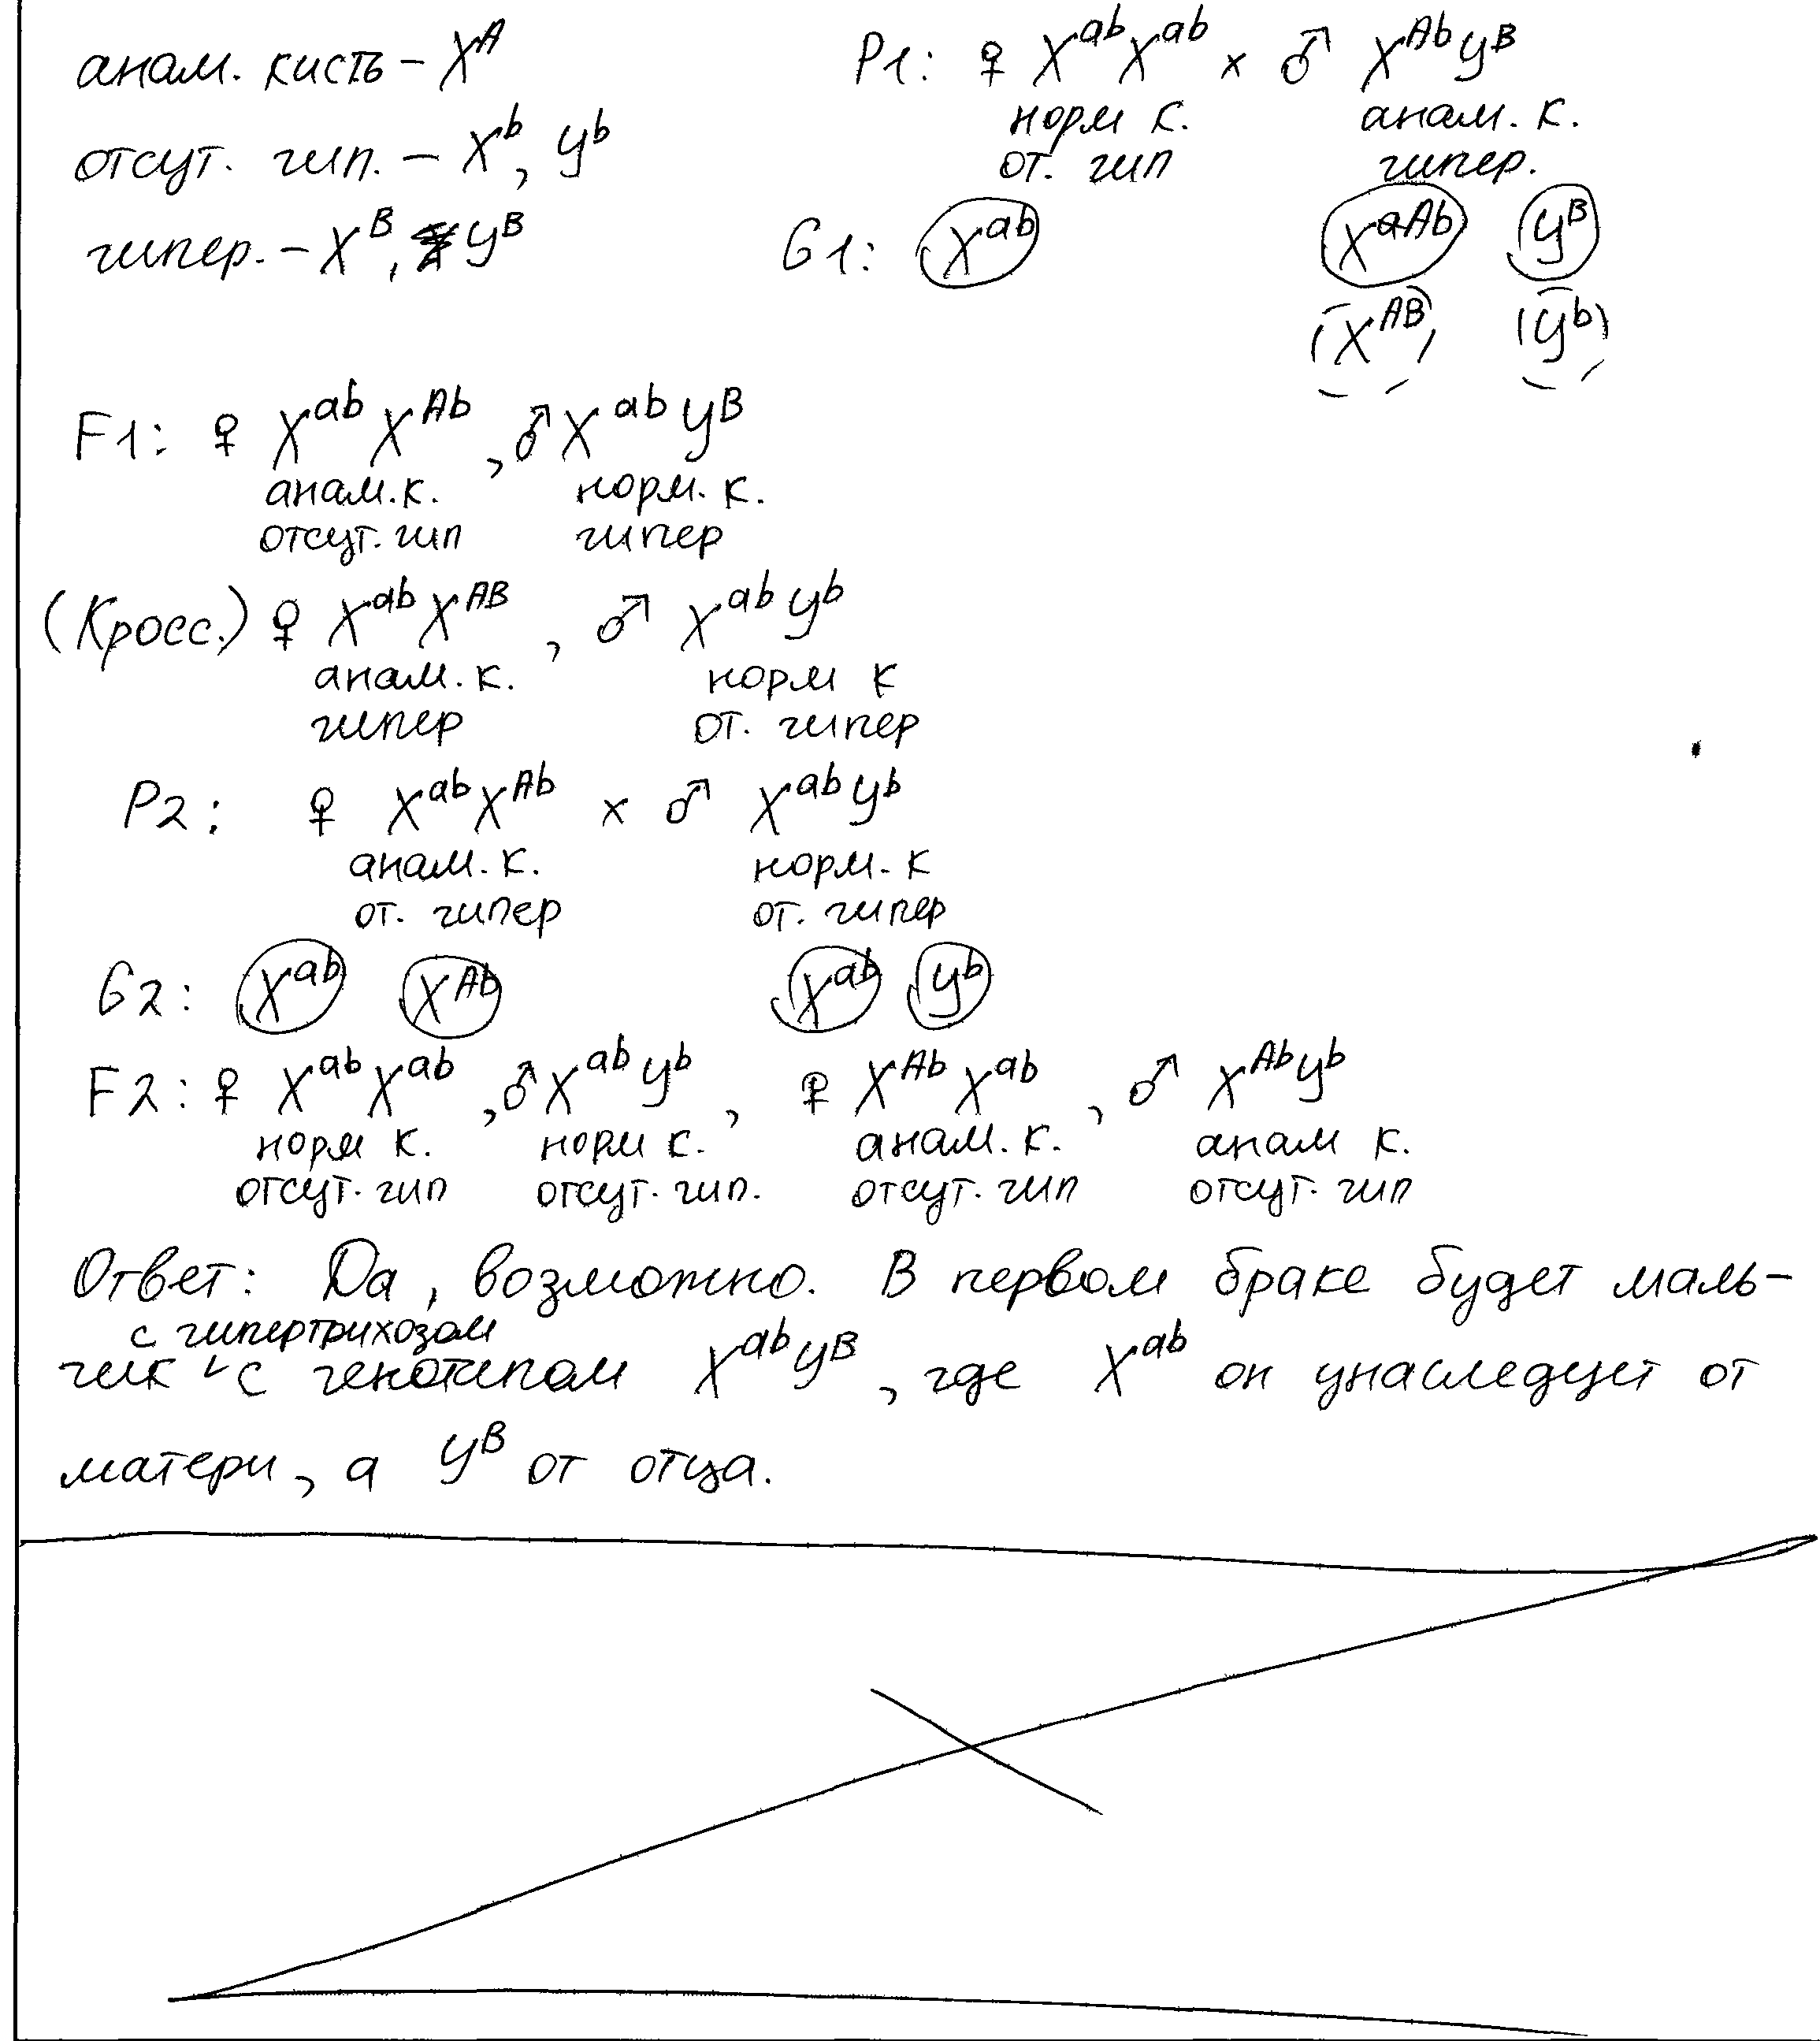 анам. кисть – Xᴬ
отсут. гип. – Xᵇ, yᵇ
гипер. – Xᴮ, yᴮ
P1: ♀ XᵃᵇXᵃᵇ × ♂ Xᴬᵇyᴮ
норм к. анам. к.
от. гип гипер.
G1: Xᵃᵇ Xᵃᴬᵇ yᴮ
(Xᴬᴮ) (yᵇ)
F1: ♀ XᵃᵇXᴬᵇ, ♂ Xᵃᵇyᴮ
анам. к. норм. к.
отсут. гип гипер
(Кросс.) ♀ XᵃᵇXᴬᴮ, ♂ Xᵃᵇyᵇ
анам. к. норм к
гипер от. гипер
P2: ♀ XᵃᵇXᴬᵇ × ♂ Xᵃᵇyᵇ
анам. к. норм. к
от. гипер от. гипер
G2: Xᵃᵇ Xᴬᵇ Xᵃᵇ yᵇ
F2: ♀ XᵃᵇXᵃᵇ, ♂ Xᵃᵇyᵇ, ♀ XᴬᵇXᵃᵇ, ♂ Xᴬᵇyᵇ
норм к. норм к. анам. к. анам к.
отсут. гип отсут. гип. отсут. гип отсут. гип
Ответ: Да, возможно. В первом браке будет маль-
с гипертрихозом
чик с генотипом Xᵃᵇyᴮ, где Xᵃᵇ он унаследует от
матери, а yᴮ от отца.